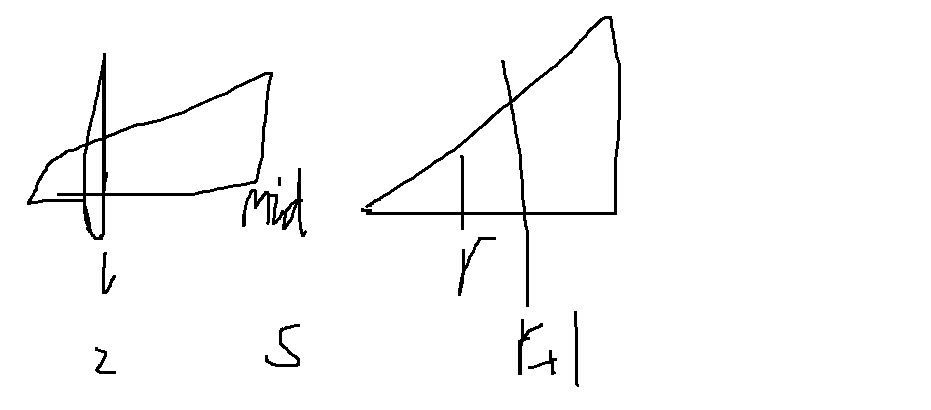 mid
l
r
2
5
r+1